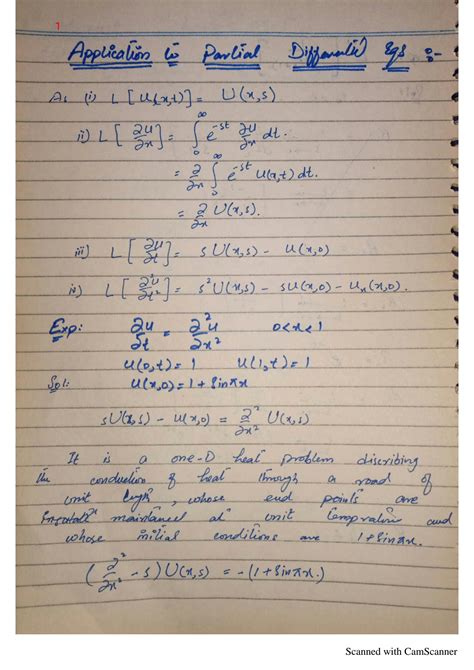 1
Application to Partial Differential Eqs :-
As (i) L[u(x,t)] = U(x,s)
ii) L[∂u/∂x] = ∫₀^∞ e^-st ∂u/∂x dt.
= ∂/∂x ∫₀^∞ e^-st u(x,t) dt.
= ∂/∂x U(x,s).
iii) L[∂u/∂t] = sU(x,s) - u(x,0)
iv) L[∂²u/∂t²] = s²U(x,s) - su(x,0) - uₓ(x,0).
Exp: ∂u/∂t = ∂²u/∂x² 0<x<1
u(0,t) = 1 u(1,t) = 1
Sol: u(x,0) = 1 + sinπx
sU(x,s) - u(x,0) = ∂²/∂x² U(x,s)
It is a one-D heat problem discribing
the conduction of heat through a road of
unit , whose end points are
maintained at unit temprature and
whose initial conditions are 1+sinπx.
(∂²/∂x² - s) U(x,s) = -(1+sinπx.)
Scanned with CamScanner